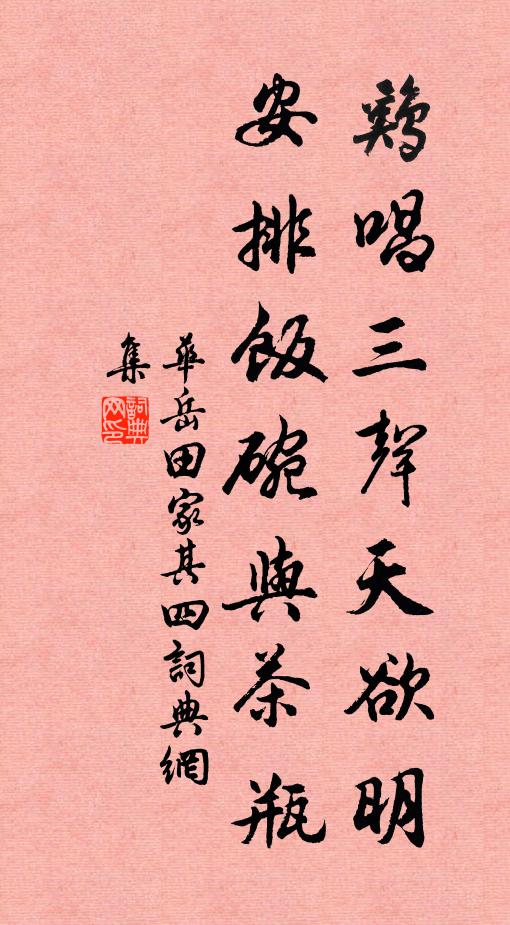 鷄唱三聲天欲明
安排飯碗與茶瓶
華岳田家其四詞典網
集
詞典
网印